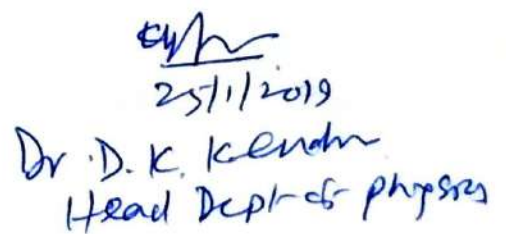 25/1/2019
Dr. D. K. Kendre
Head Dept of physics